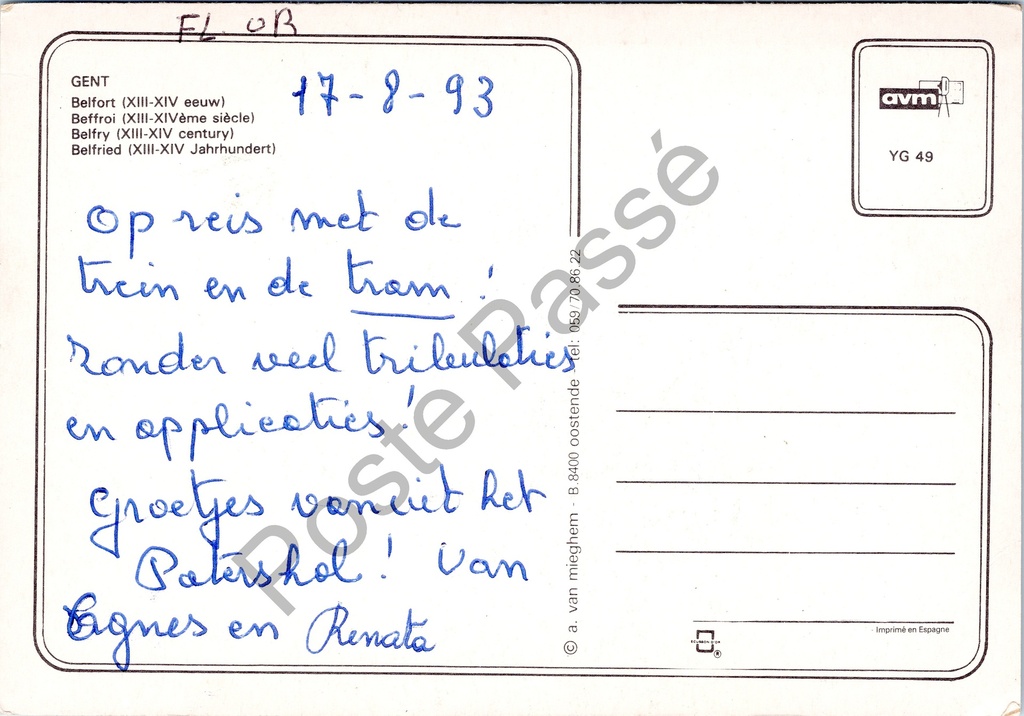 FL. OB
GENT
Belfort (XIII-XIV eeuw)
Beffroi (XIII-XIVème siècle)
Belfry (XIII-XIV century)
Belfried (XIII-XIV Jahrhundert)
17-8-93
Op reis met de
trein en de tram!
Zonder veel tribulaties
en applicaties!
Groetjes vanuit het
Patershol! Van
Agnes en Renata
© a. van mieghem - B.8400 oostende - tel: 059/70.86.22
avm
YG 49
Imprimé en Espagne
ECUSSON D'OR
®
Poste Passé